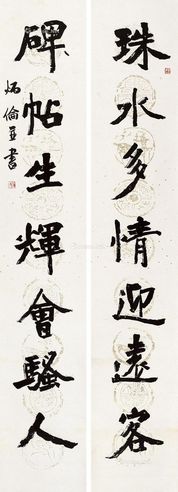 珠水多情迎遠客
碑帖生輝會騷人
炳倫並書